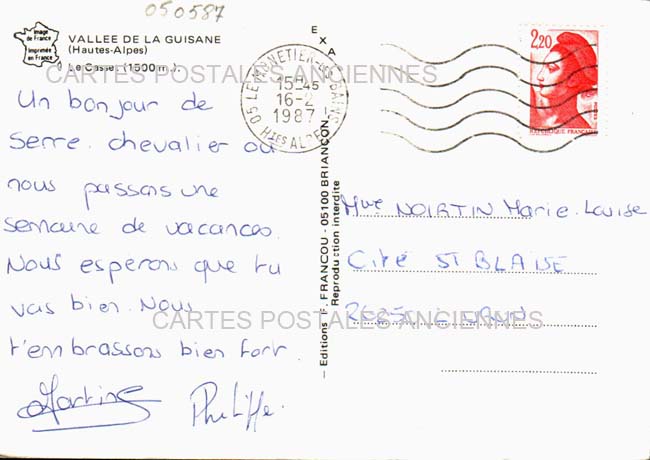 050587
Image
de France
Imprimée
en France
VALLEE DE LA GUISANE
(Hautes-Alpes)
Le Casset (1500 m.).
CARTES POSTALES ANCIENNES
Un bonjour de
Serre. chevalier où
nous passons une
semaine de vacances.
Nous esperons que tu
vas bien. Nous
t'embrassons bien fort.
Martine Philippe.
EXA
– Editions F. FRANCOU - 05100 BRIANÇON –
Reproduction interdite
05 LE MONETIER-LES-BAINS
15H45
16-2
1987
HTES ALPES
2,20
REPUBLIQUE FRANCAISE
Mme NOIRTIN Marie-Louise
Cité St BLAISE
CARTES POSTALES ANCIENNES